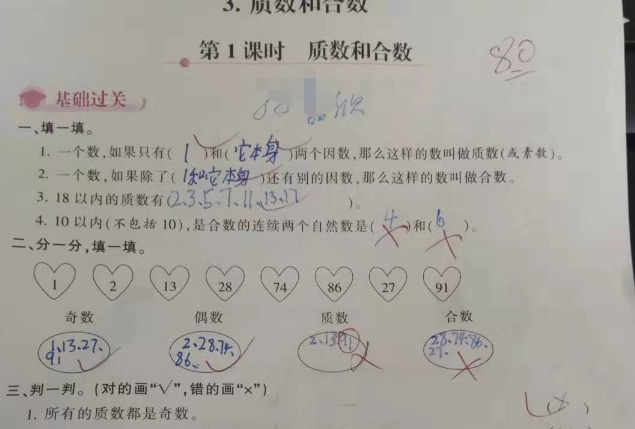 3. 质数和合数
第1课时 质数和合数
80
基础过关
一、填一填。
1. 一个数,如果只有(1)和(它本身)两个因数,那么这样的数叫做质数(或素数)。
2. 一个数,如果除了(1和它本身)还有别的因数,那么这样的数叫做合数。
3. 18以内的质数有(2、3、5、7、11、13、17)。
4. 10以内(不包括10),是合数的连续两个自然数是(4)和(6)。
二、分一分,填一填。
1 2 13 28 74 86 27 91
奇数 偶数 质数 合数
1、13、27、 2、28、74、 2、13、91 28、74、86、
91 86、 27、
三、判一判。(对的画“√”,错的画“×”)
1. 所有的质数都是奇数。 (×)